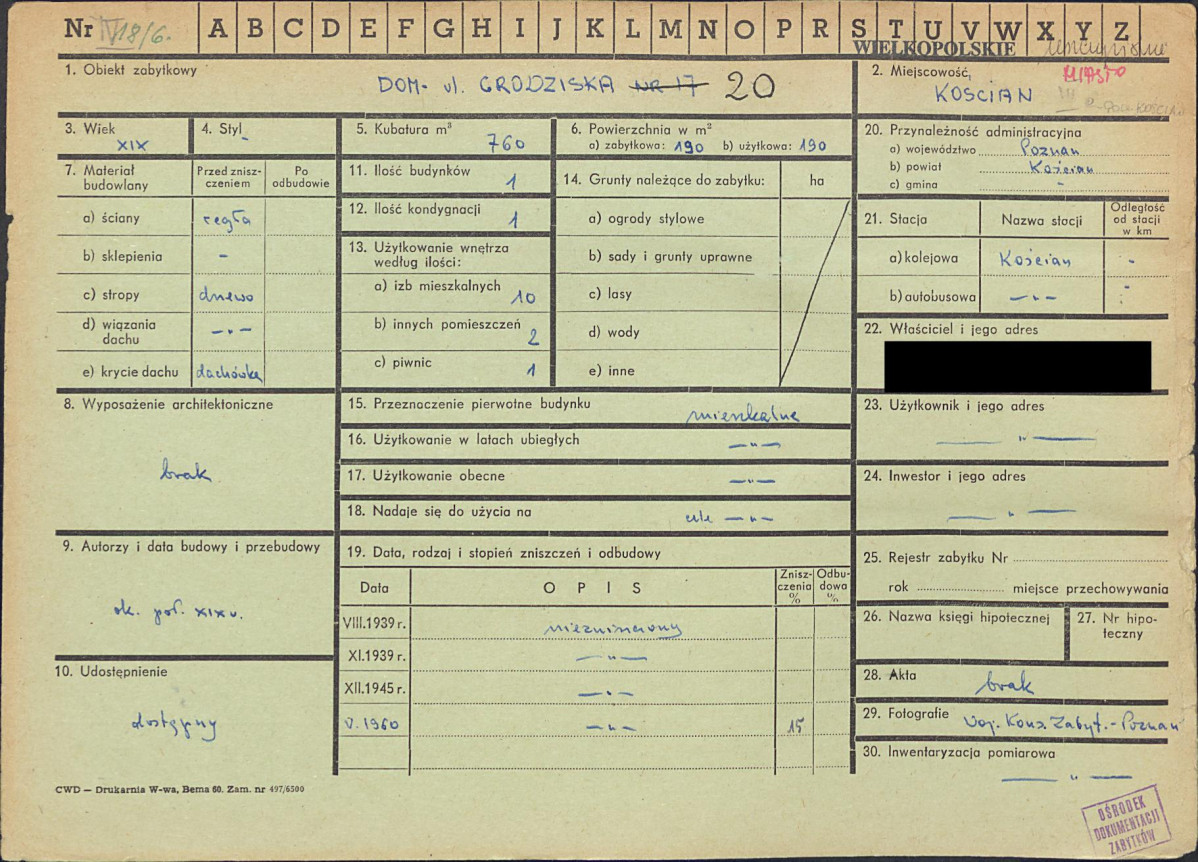 Nr IV 18/6. A B C D E F G H I J K L M N O P R S T U V W X Y Z
WIELKOPOLSKIE
1. Obiekt zabytkowy
DOM - ul. GRODZISKA NR 17 20
2. Miejscowość,
MIASTO
KOSCIAN
3. Wiek
XIX
4. Styl
-
5. Kubatura m³
760
6. Powierzchnia w m²
a) zabytkowa: 190 b) użytkowa: 190
20. Przynależność administracyjna
a) województwo Poznan
b) powiat Kościan
c) gmina -
7. Materiał budowlany
Przed zniszczeniem
Po odbudowie
a) ściany cegła
b) sklepienia -
c) stropy drzewo
d) wiązania dachu -„-
e) krycie dachu dachówka
11. Ilość budynków
1
12. Ilość kondygnacji
1
13. Użytkowanie wnętrza
według ilości:
a) izb mieszkalnych
10
b) innych pomieszczeń
2
c) piwnic
1
14. Grunty należące do zabytku: ha
a) ogrody stylowe
b) sady i grunty uprawne
c) lasy
d) wody
e) inne
21. Stacja
Nazwa stacji
Odległość od stacji w km
a) kolejowa Kościan -
b) autobusowa -„-
22. Właściciel i jego adres
8. Wyposażenie architektoniczne
brak
15. Przeznaczenie pierwotne budynku
mieszkalne
16. Użytkowanie w latach ubiegłych
-„-
17. Użytkowanie obecne
-„-
18. Nadaje się do użycia na
cele -„-
23. Użytkownik i jego adres
-„-
24. Inwestor i jego adres
-„-
9. Autorzy i data budowy i przebudowy
ok. poł. XIX w.
19. Data, rodzaj i stopień zniszczeń i odbudowy
Data
O P I S
Zniszczenia %
Odbudowa %
VIII.1939 r. niezniszczony
XI.1939 r. -„-
XII.1945 r. -„-
V. 1960 -„- 15
25. Rejestr zabytku Nr
rok miejsce przechowywania
26. Nazwa księgi hipotecznej
27. Nr hipoteczny
10. Udostępnienie
dostępny
28. Akta
brak
29. Fotografie Woj. Kons. Zabyt. - Poznań
30. Inwentaryzacja pomiarowa
-„-
CWD — Drukarnia W-wa, Bema 60. Zam. nr 497/6500
OŚRODEK
DOKUMENTACJI
ZABYTKÓW